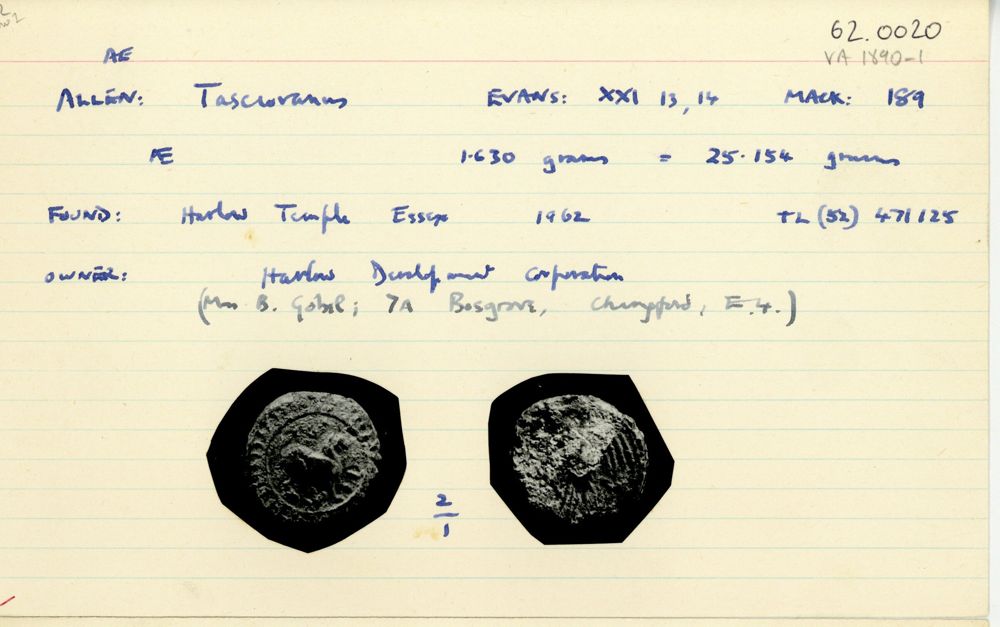 62.0020
VA 1890-1
AE
ALLEN: Tasciovanus EVANS: XXI 13, 14 MACK: 189
Æ 1.630 grams = 25.154 grains
FOUND: Harlow Temple Essex 1962 TL (52) 471125
OWNER: Harlow Development Corporation
(B. Gobel; 7A Bosgrove, Chingford, E.4.)
2
1